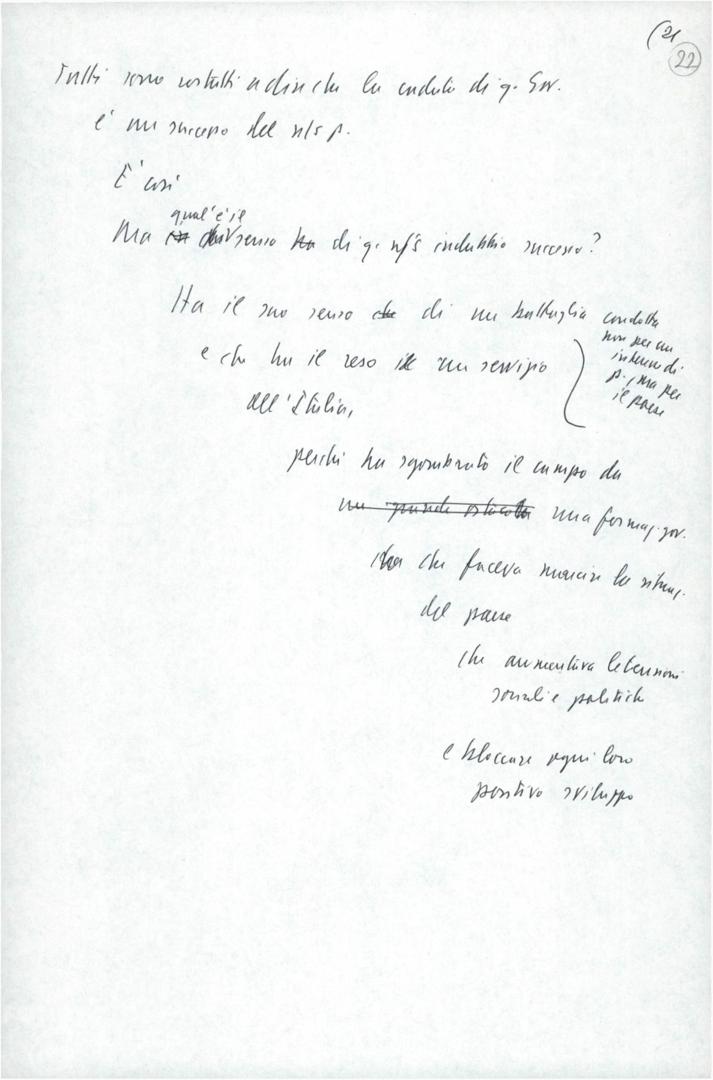 (21
22
Tutti sono costretti a dire che la caduta di q. Gov.
è un successo del n/s p.
E' così
qual'è il
Ma senso di q. n/s indubbio successo?
Ha il suo senso di un battaglia
condotta
non per un
interesse di
p., ma per
il paese
e che ha il reso un servizio
all'Italia,
perché ha sgombrato il campo da
un grande ostacolo una formaz. gov.
che faceva marcire la situaz.
del paese
che aumentava le tensioni
sociali e politiche
e bloccare ogni loro
positivo sviluppo